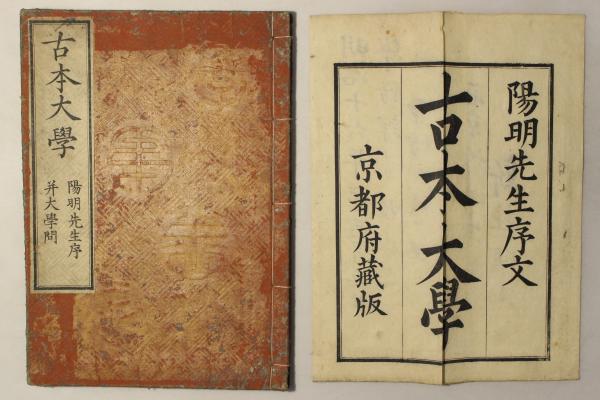 古本大學
陽明先生序
并大學問
陽明先生序文
古本大學
京都府藏版